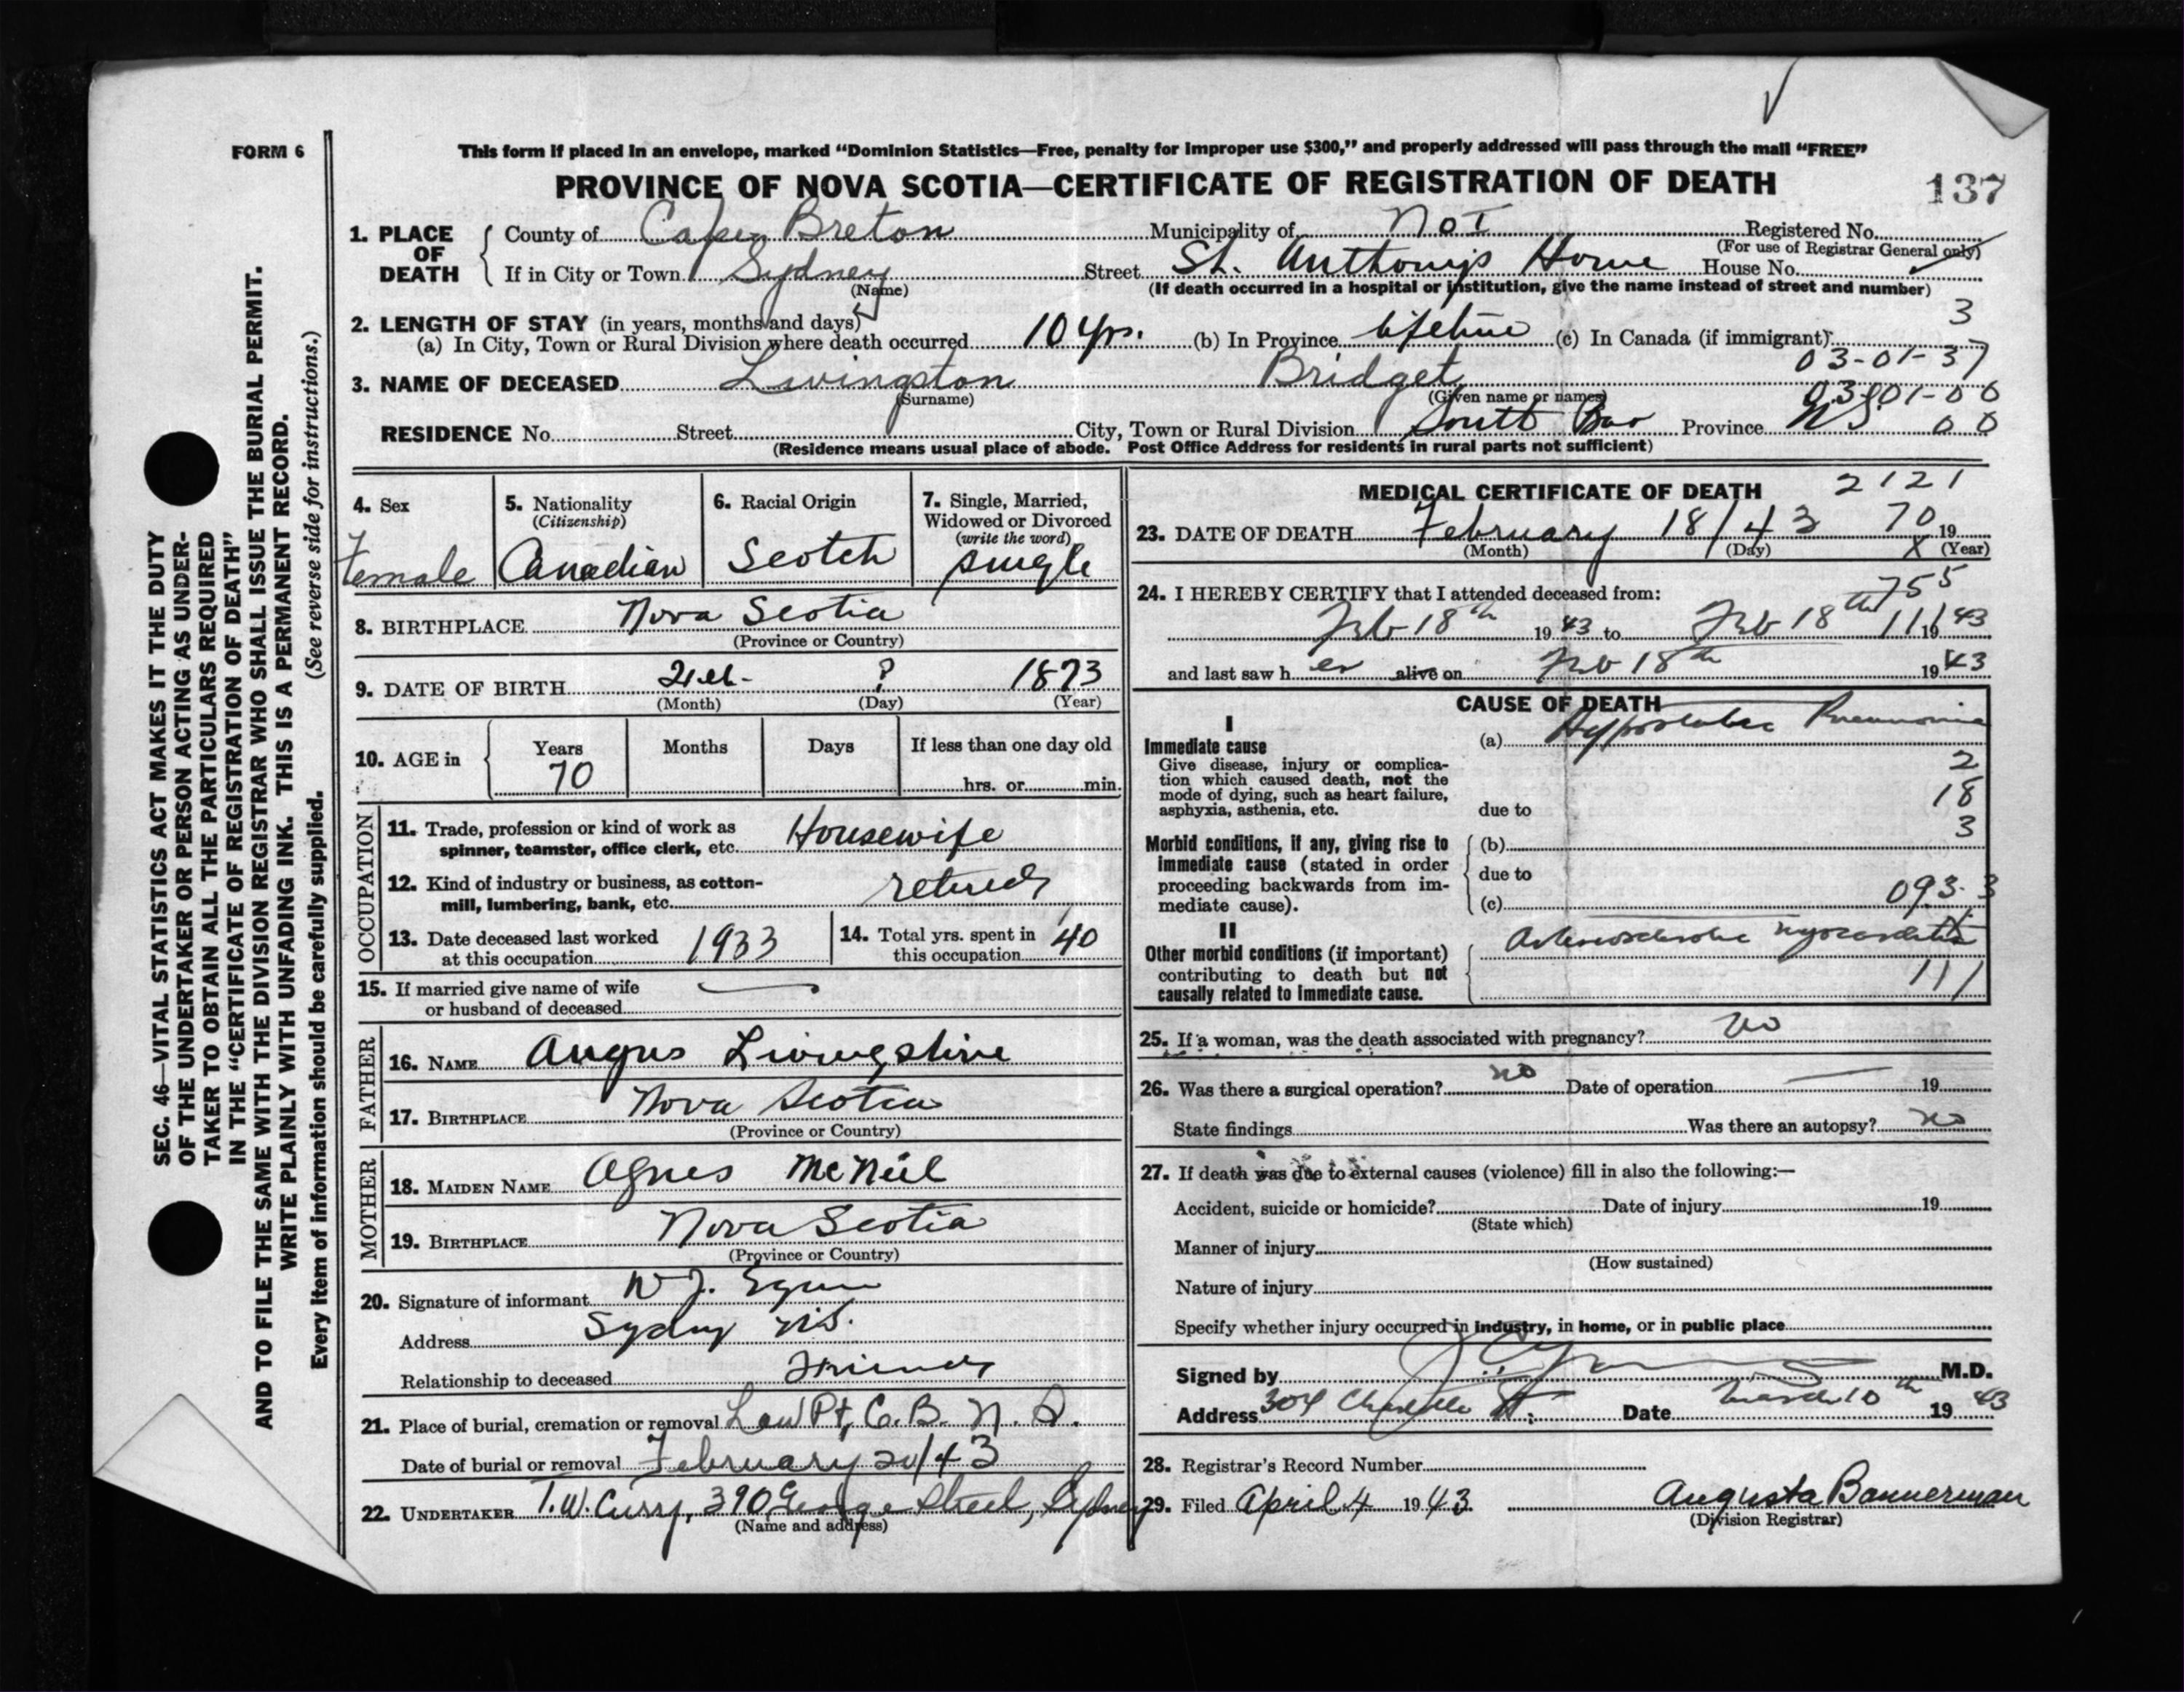 FORM 6
This form if placed in an envelope, marked “Dominion Statistics—Free, penalty for improper use $300,” and properly addressed will pass through the mail “FREE”
PROVINCE OF NOVA SCOTIA—CERTIFICATE OF REGISTRATION OF DEATH
137
1. PLACE OF DEATH
County of Cape Breton Municipality of No I Registered No.
(For use of Registrar General only)
If in City or Town Sydney Street St. Anthony's Home House No.
(Name) (If death occurred in a hospital or institution, give the name instead of street and number)
3
2. LENGTH OF STAY (in years, months and days)
(a) In City, Town or Rural Division where death occurred 10 yrs. (b) In Province lifetime (c) In Canada (if immigrant)
03-01-37
3. NAME OF DECEASED Livingston Bridget
(Surname) (Given name or names) 03-01-00
RESIDENCE No. Street City, Town or Rural Division South Bar Province N.S. 00
(Residence means usual place of abode. Post Office Address for residents in rural parts not sufficient)
4. Sex
Female
5. Nationality
(Citizenship)
Canadian
6. Racial Origin
Scotch
7. Single, Married,
Widowed or Divorced
(write the word)
single
8. BIRTHPLACE Nova Scotia
(Province or Country)
9. DATE OF BIRTH ? 1873
(Month) (Day) (Year)
10. AGE in Years Months Days If less than one day old
70
hrs. or min.
OCCUPATION
11. Trade, profession or kind of work as
spinner, teamster, office clerk, etc. Housewife
12. Kind of industry or business, as cotton-
mill, lumbering, bank, etc. retired
13. Date deceased last worked
at this occupation 1933
14. Total yrs. spent in
this occupation 40
15. If married give name of wife
or husband of deceased
FATHER
16. NAME Angus Livingstine
17. BIRTHPLACE Nova Scotia
(Province or Country)
MOTHER
18. MAIDEN NAME Agnes McNeil
19. BIRTHPLACE Nova Scotia
(Province or Country)
20. Signature of informant W J.
Address Sydney N.S.
Relationship to deceased Friend
21. Place of burial, cremation or removal Low Pt, C. B. N. S.
Date of burial or removal February 20/43
22. UNDERTAKER T.W. Curry, 390 George Street, Sydney
(Name and address)
MEDICAL CERTIFICATE OF DEATH 2121
23. DATE OF DEATH February 18/43 70 19
(Month) (Day) X (Year)
24. I HEREBY CERTIFY that I attended deceased from: 755
Feb 18th 1943 to Feb 18th 111 1943
and last saw her alive on Feb 18th 1943
CAUSE OF DEATH
I
Immediate cause
Give disease, injury or complica-
tion which caused death, not the
mode of dying, such as heart failure,
asphyxia, asthenia, etc.
(a) Hypostatic Pneumonia
2
18
due to
3
Morbid conditions, if any, giving rise to
immediate cause (stated in order
proceeding backwards from im-
mediate cause).
(b)
due to
(c) 093-3
II
Other morbid conditions (if important)
contributing to death but not
causally related to immediate cause.
Arteriosclerotic myocarditis
111
25. If a woman, was the death associated with pregnancy? No
26. Was there a surgical operation? no Date of operation 19
State findings Was there an autopsy? no
27. If death was due to external causes (violence) fill in also the following:—
Accident, suicide or homicide? Date of injury 19
(State which)
Manner of injury
(How sustained)
Nature of injury
Specify whether injury occurred in industry, in home, or in public place
Signed by M.D.
Address 304 Charlotte St. Date March 10th 1943
28. Registrar's Record Number
29. Filed April 4 1943 Augusta Bannerman
(Division Registrar)
SEC. 46—VITAL STATISTICS ACT MAKES IT THE DUTY
OF THE UNDERTAKER OR PERSON ACTING AS UNDER-
TAKER TO OBTAIN ALL THE PARTICULARS REQUIRED
IN THE “CERTIFICATE OF REGISTRATION OF DEATH”
AND TO FILE THE SAME WITH THE DIVISION REGISTRAR WHO SHALL ISSUE THE BURIAL PERMIT.
WRITE PLAINLY WITH UNFADING INK. THIS IS A PERMANENT RECORD.
Every item of information should be carefully supplied. (See reverse side for instructions.)